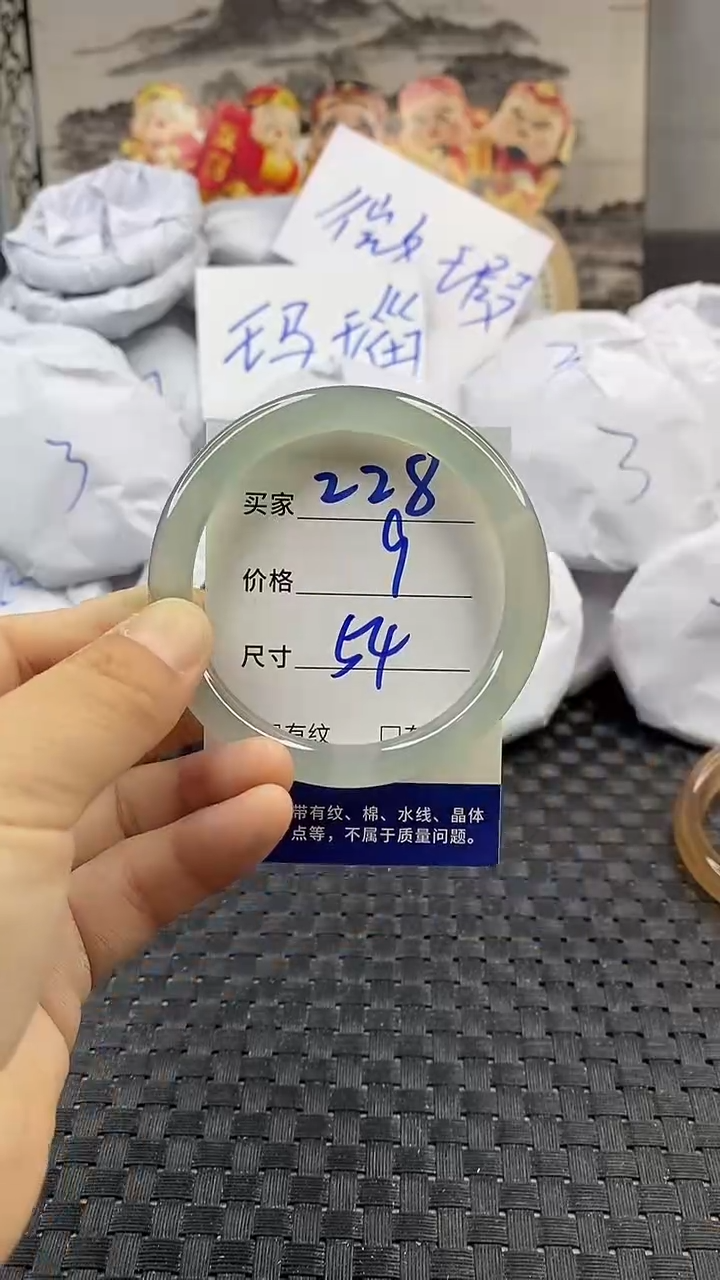 微瑕
玛瑙
3
3
买家 228
价格 9
尺寸 54
有纹 □有
带有纹、棉、水线、晶体
点等，不属于质量问题。